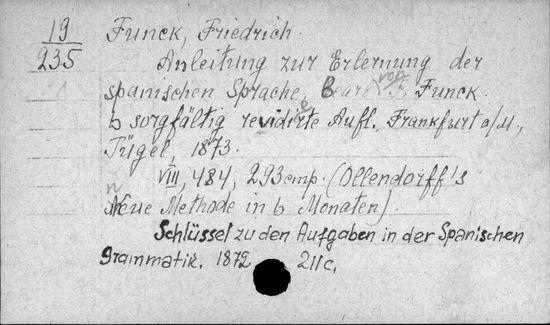 19 Funck, Friedrich.
235 Anleitung zur Erlernung der
spanischen Sprache, Bearb. von F. Funck.
6 sorgfältig revidirte Aufl., Frankfurt a/M.,
Jügel, 1873.
VIII, 484, 293 cmp. (Ollendorff's
Neue Methode in 6 Monaten).
Schlüssel zu den Aufgaben in der Spanischen
Grammatik. 1872 211c,